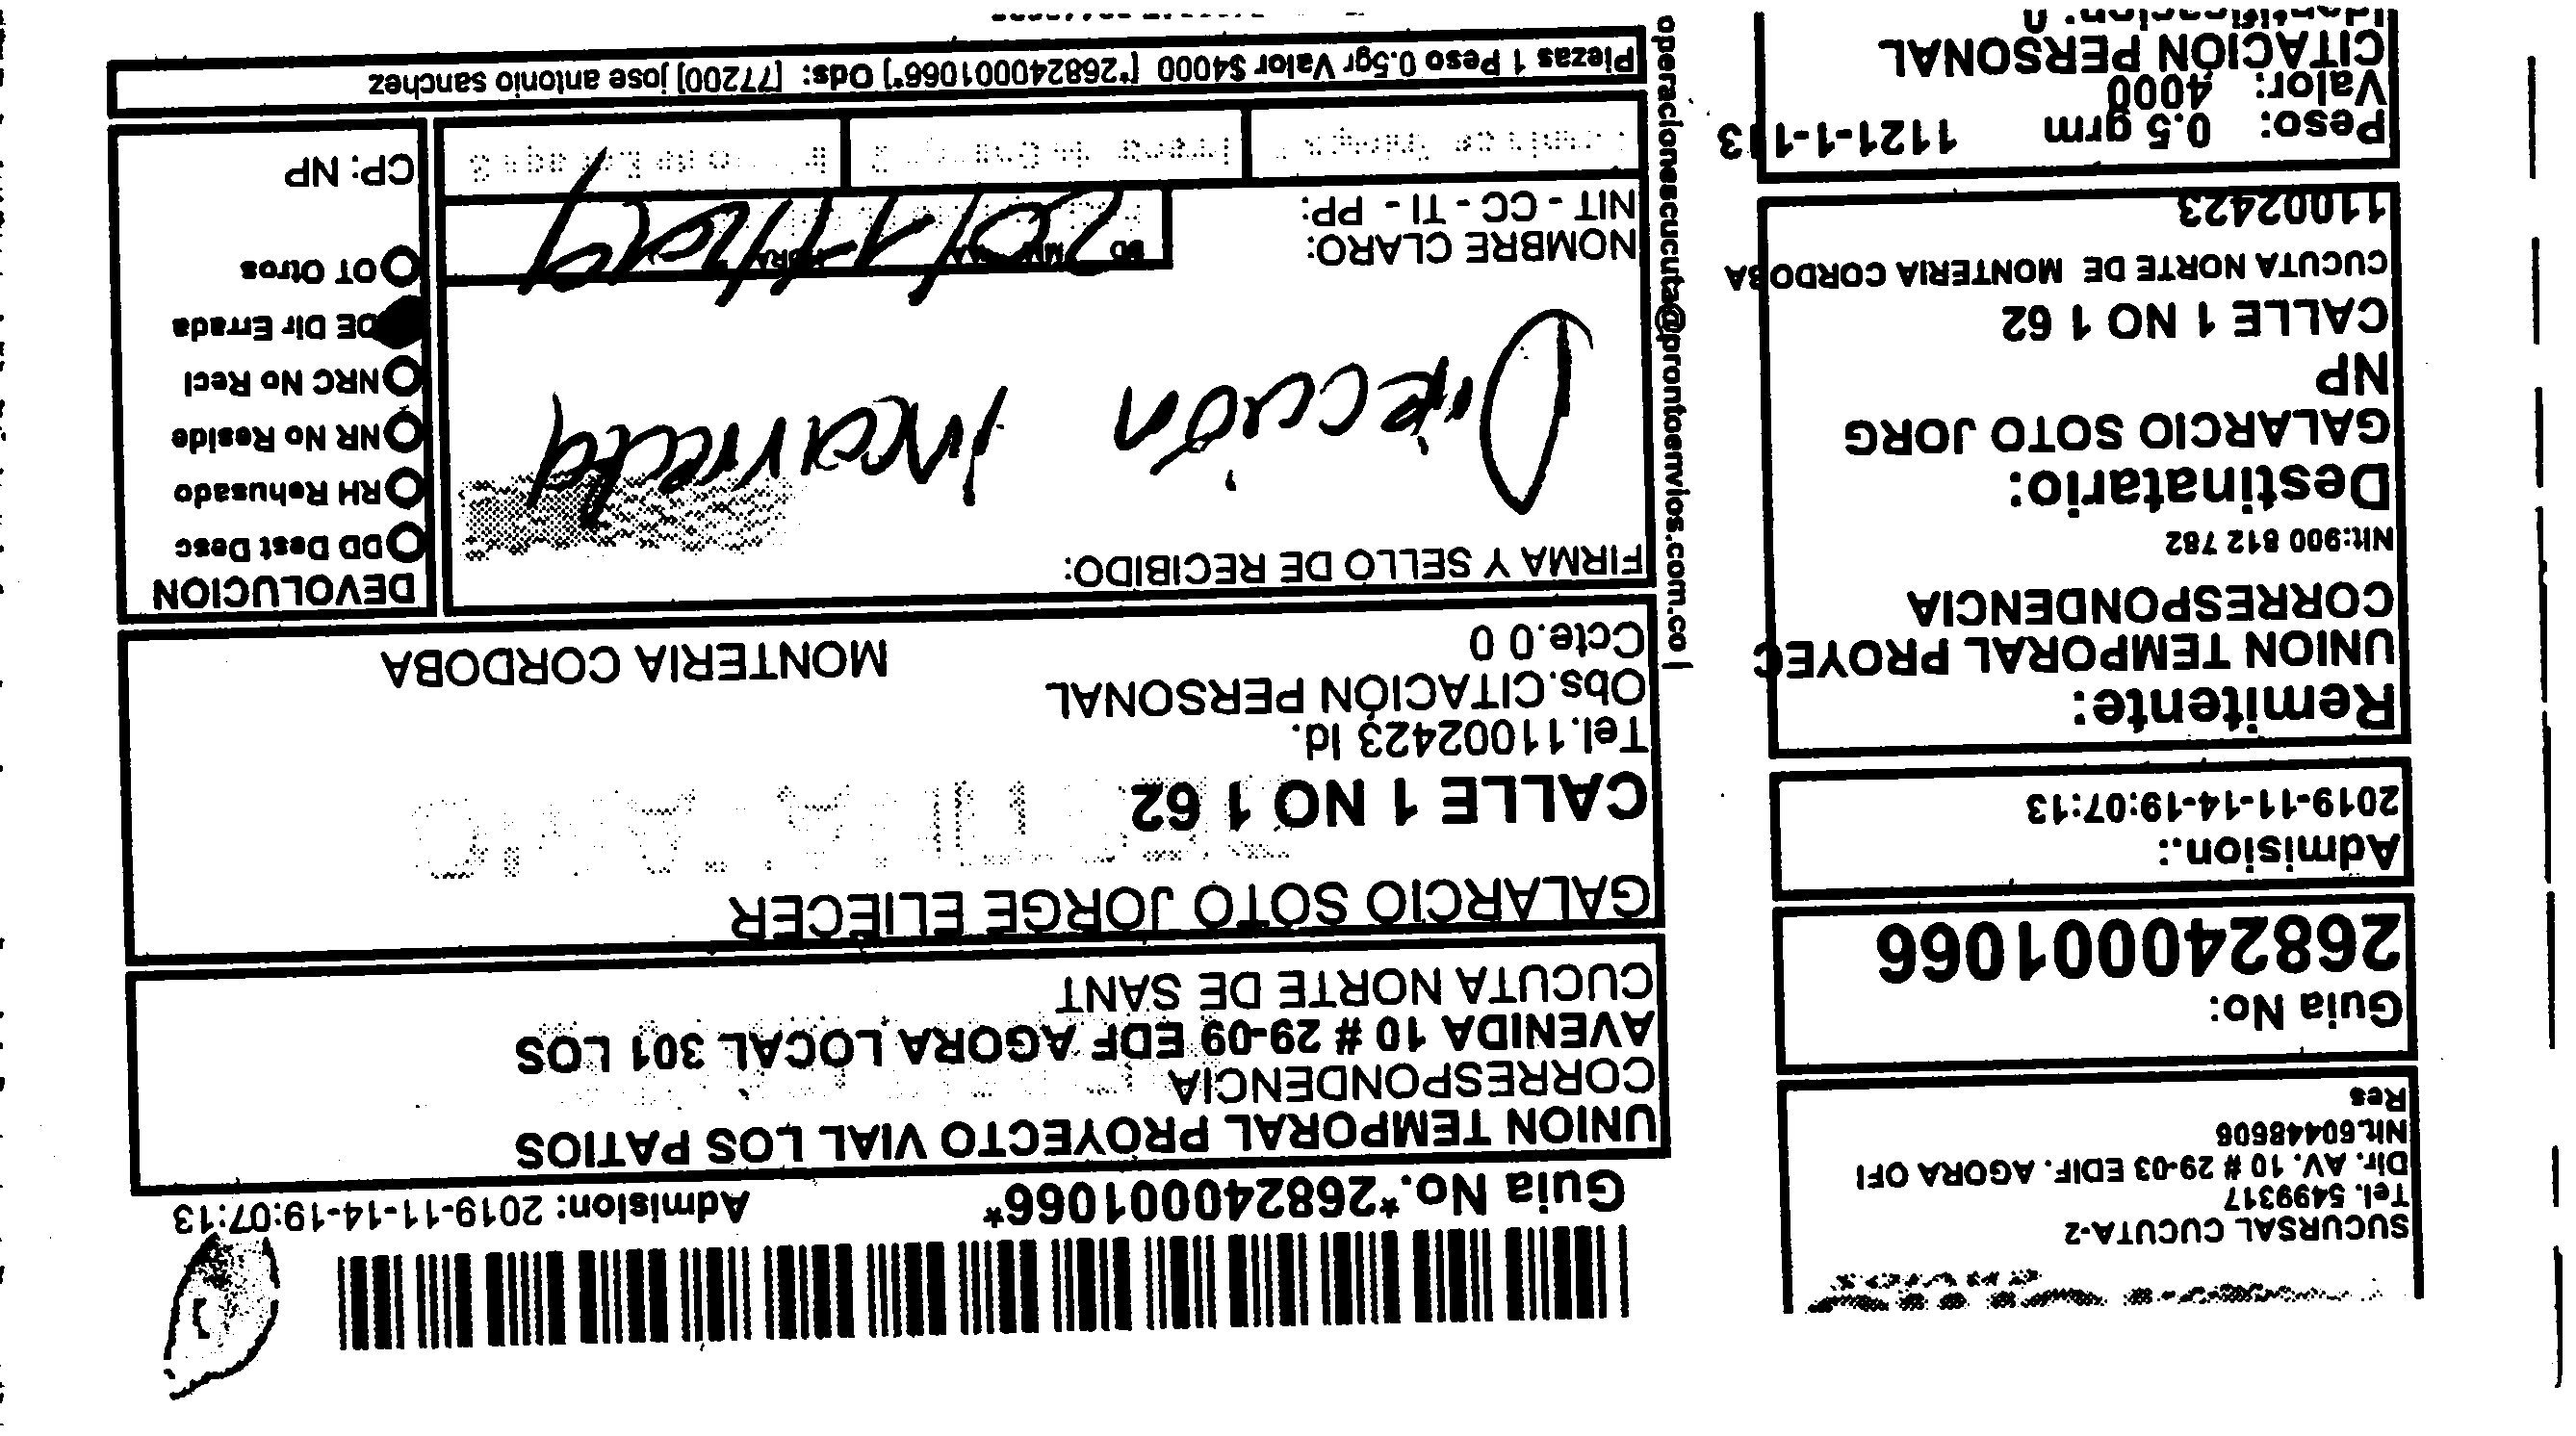 SUCURSAL CUCUTA-2
Tel. 5499317
Dir. AV. 10 # 29-03 EDIF. AGORA OFI
Nit.60448606
Res
Guia No:
268240001066
Admision.:
2019-11-14-19:07:13
Remitente:
UNION TEMPORAL PROYEC
CORRESPONDENCIA
Nit:900 812 782
Destinatario:
GALARCIO SOTO JORG
NP
CALLE 1 NO 1 62
CUCUTA NORTE DE MONTERIA CORDOBA
11002423
Peso: 0.5 grm 1121-1-1-113
Valor: 4000
CITACIÓN PERSONAL
Guia No.*268240001066* Admision: 2019-11-14-19:07:13
UNION TEMPORAL PROYECTO VIAL LOS PATIOS
CORRESPONDENCIA
AVENIDA 10 # 29-09 EDF AGORA LOCAL 301 LOS
CUCUTA NORTE DE SANT
GALARCIO SOTO JORGE ELIECER
CALLE 1 NO 1 62
Tel.11002423 Id.
Obs.CITACIÓN PERSONAL
Ccte.0 0 MONTERIA CORDOBA
FIRMA Y SELLO DE RECIBIDO:
Dirección incorrecta
NOMBRE CLARO:
NIT - CC - TI - PP:
DD MM AA HORA
DEVOLUCION
DD Dest Desc
RH Rehusado
NR No Reside
NRC No Recl
DE Dir Errada
OT Otros
CP: NP
Piezas 1 Peso 0.5gr Valor $4000 [*268240001066*] Ods: [77200] jose antonio sanchez
operacionescucuta@prontoenvios.com.co |